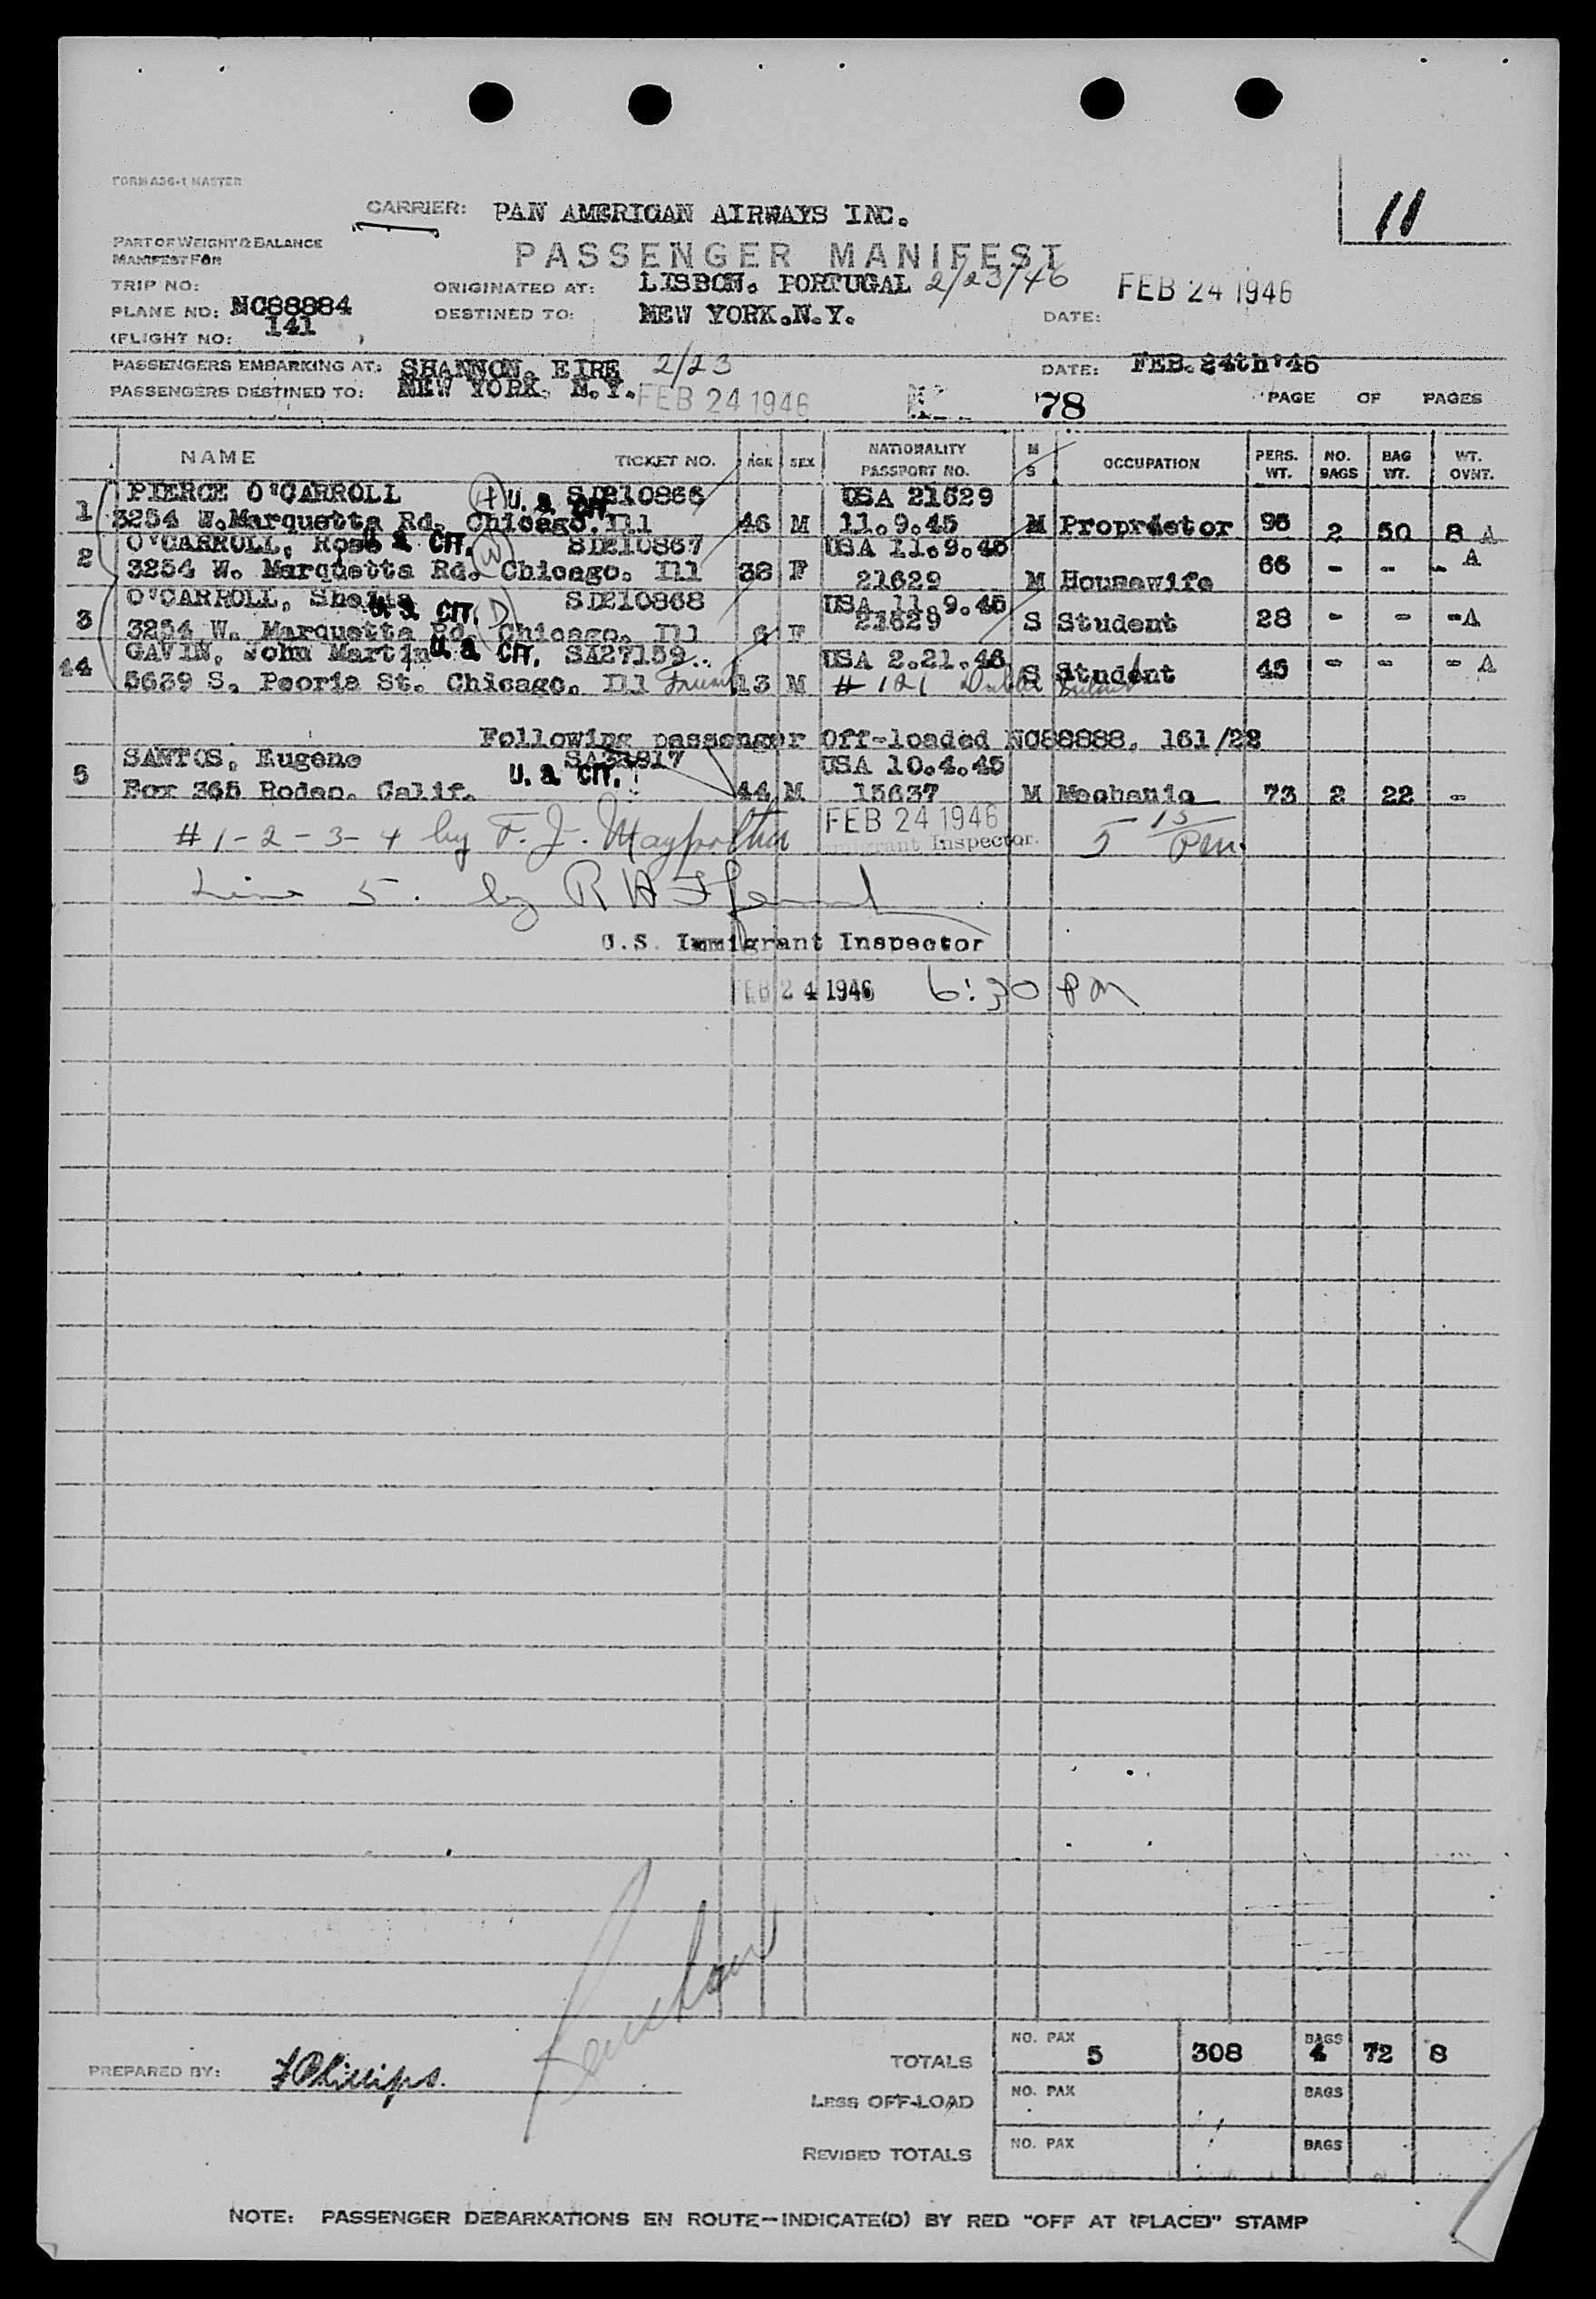 FORM A36-1 MASTER
CARRIER: PAN AMERICAN AIRWAYS INC.
11
PART OF WEIGHT & BALANCE
MANIFEST FOR
PASSENGER MANIFEST
TRIP NO: ORIGINATED AT: LISBON. PORTUGAL 2/23/46 FEB 24 1946
PLANE NO: NC88884 DESTINED TO: NEW YORK.N.Y. DATE:
(FLIGHT NO: 141 )
PASSENGERS EMBARKING AT: SHANNON. EIRE 2/23 DATE: FEB.24th'46
PASSENGERS DESTINED TO: NEW YORK. N.Y. FEB 24 1946 78 PAGE OF PAGES
NAME TICKET NO. AGE SEX NATIONALITY PASSPORT NO. M S OCCUPATION PERS. WT. NO. BAGS BAG WT. WT. OVNT.
PIERCE O'CARROLL (H) U. S. CIT. SD210866 USA 21629
1 3254 W.Marquetta Rd. Chicago.Ill 46 M 11.9.45 M Proprietor 96 2 50 8 A
O'CARROLL, Rose U. S. CIT. (W) SD210867 USA 11.9.45
2 3254 W. Marquetta Rd. Chicago. Ill 38 F 21629 M Housewife 66 - - - A
O'CARROLL, Sheila U. S. CIT. (D) SD210868 USA 11.9.45
3 3254 W. Marquetta Rd. Chicago. Ill 6 F 21629 S Student 28 - - - A
GAVIN, John Martin U. S. CIT. SA27159 USA 2.21.46
44 5639 S. Peoria St. Chicago. Ill Friend 13 M # 121 Dublin S Student 45 - - - A
Following passenger Off-loaded NC88888. 161/22
SANTOS, Eugene U. S. CIT. USA 10.4.45
5 Box 365 Rodeo. Calif. 44 M 15637 M Mechanic 73 2 22 -
# 1 - 2 - 3 - 4 by F. J. FEB 24 1946 Immigrant Inspector.
Line 5. by R H
U.S. Immigrant Inspector
FEB 24 1946 6:30 PM
PREPARED BY: J Phillips.
TOTALS NO. PAX 5 308 BAGS 4 72 8
LESS OFF-LOAD NO. PAX BAGS
REVISED TOTALS NO. PAX BAGS
NOTE: PASSENGER DEBARKATIONS EN ROUTE—INDICATE(D) BY RED "OFF AT (PLACE)" STAMP